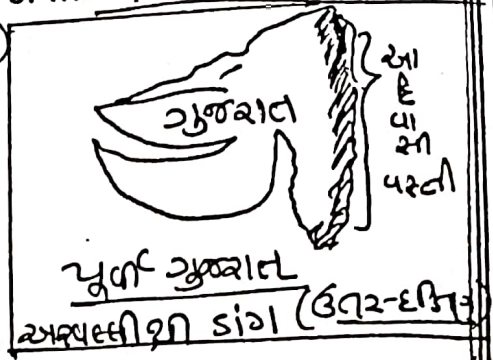 ગુજરાત
આદિવાસી વસ્તી
પૂર્વ ગુજરાત
અરવલ્લીથી ડાંગ (ઉતર-દક્ષિણ)